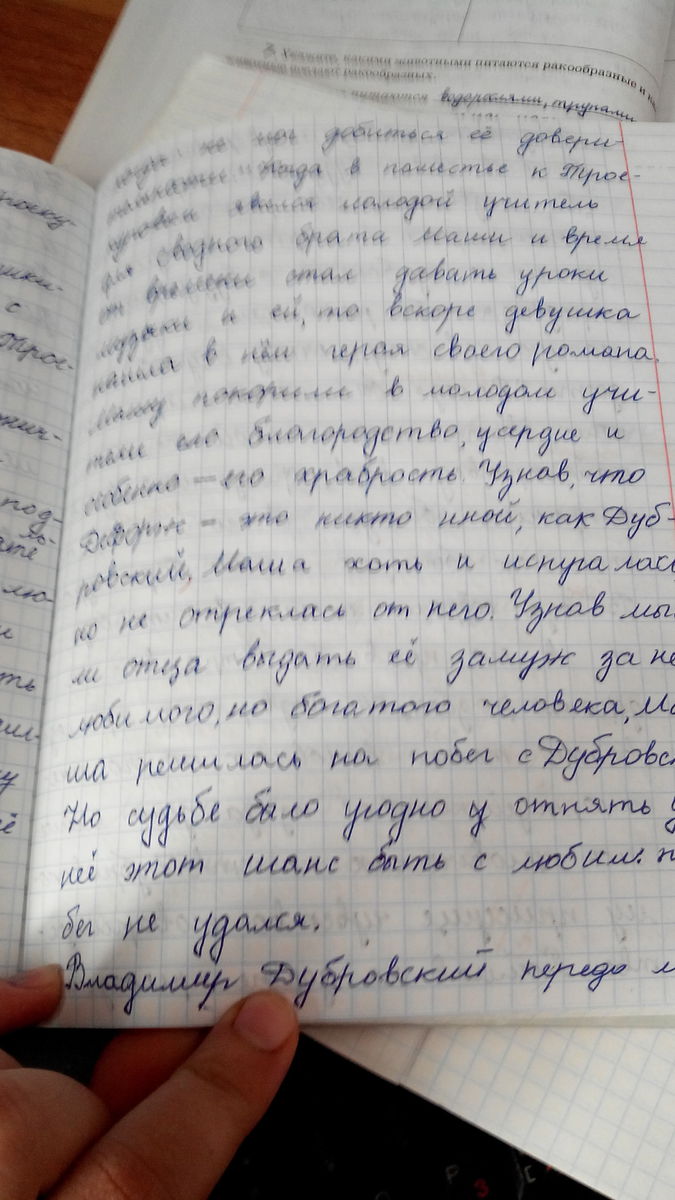 2. Укажите, какими животными питаются ракообразные и ка
ракообразных.
питаются водорослями, трупами
добиться её довери-
в поместье к Трое-
явился молодой учитель
для сводного брата Маши и время
от времени стал давать уроки
музыки и ей, то вскоре девушка
нашла в нём героя своего романа.
Машу покорили в молодом учи-
теле его благородство, усердие и
особенно – его храбрость. Узнав, что
Дефорж – это никто иной, как Дуб-
ровский, Маша хоть и испугалась
но не отреклась от него. Узнав мы
ли отца выдать её замуж за не
любимого, но богатого человека, Ма
ша решилась на побег с Дубровс
Но судьбе было угодно у отнять у
неё этот шанс быть с любим. п
бег не удался.
Владимир Дубровский – передо м
роску-
с
Трое-
под-
лю-
и
ть
у
её